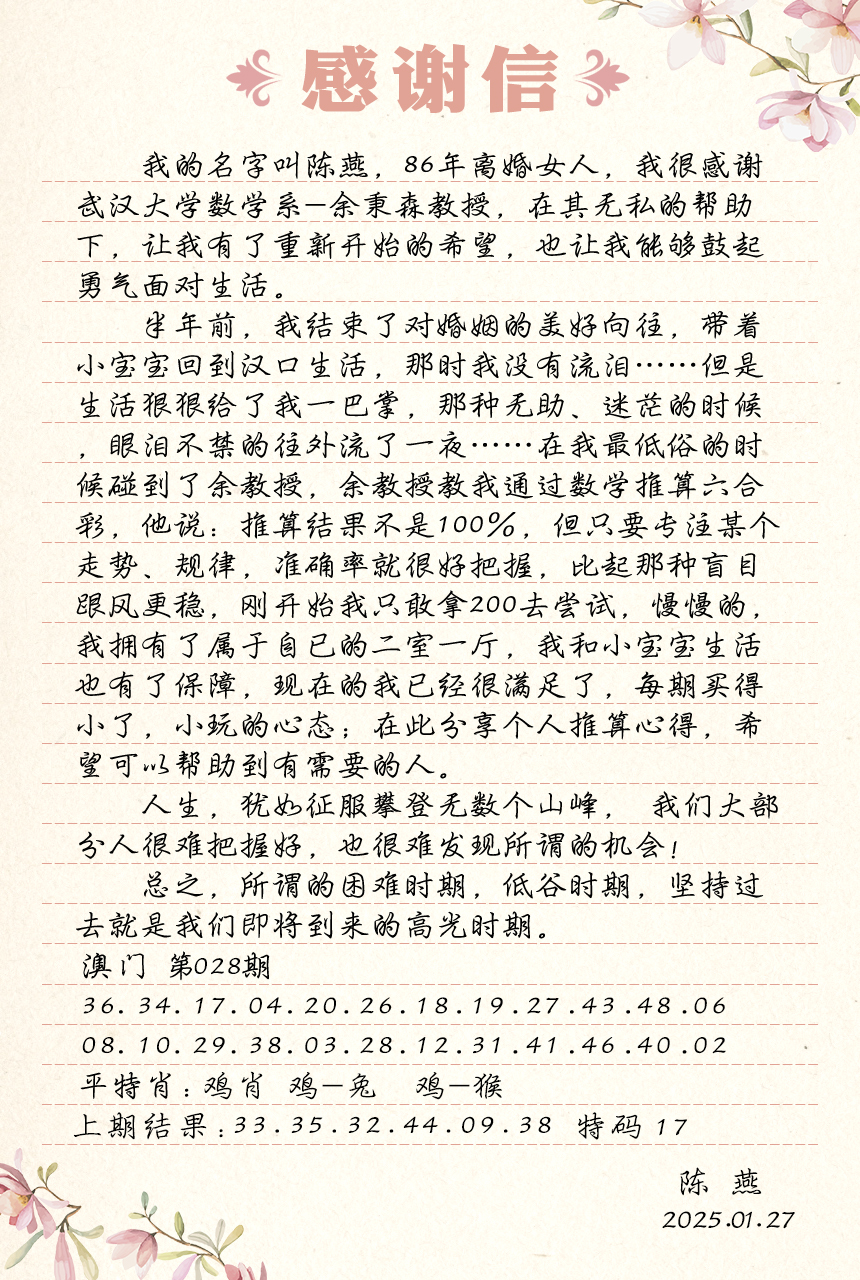 感谢信
我的名字叫陈燕，86年离婚女人，我很感谢
武汉大学数学系—余秉森教授，在其无私的帮助
下，让我有了重新开始的希望，也让我能够鼓起
勇气面对生活。
半年前，我结束了对婚姻的美好向往，带着
小宝宝回到汉口生活，那时我没有流泪……但是
生活狠狠给了我一巴掌，那种无助、迷茫的时候
，眼泪不禁的往外流了一夜……在我最低俗的时
候碰到了余教授，余教授教我通过数学推算六合
彩，他说：推算结果不是100%，但只要专注某个
走势、规律，准确率就很好把握，比起那种盲目
跟风更稳，刚开始我只敢拿200去尝试，慢慢的，
我拥有了属于自己的二室一厅，我和小宝宝生活
也有了保障，现在的我已经很满足了，每期买得
小了，小玩的心态；在此分享个人推算心得，希
望可以帮助到有需要的人。
人生，犹如征服攀登无数个山峰， 我们大部
分人很难把握好，也很难发现所谓的机会！
总之，所谓的困难时期，低谷时期，坚持过
去就是我们即将到来的高光时期。
澳门 第028期
36.34.17.04.20.26.18.19.27.43.48.06
08.10.29.38.03.28.12.31.41.46.40.02
平特肖：鸡肖 鸡—兔 鸡—猴
上期结果：33.35.32.44.09.38 特码 17
陈 燕
2025.01.27